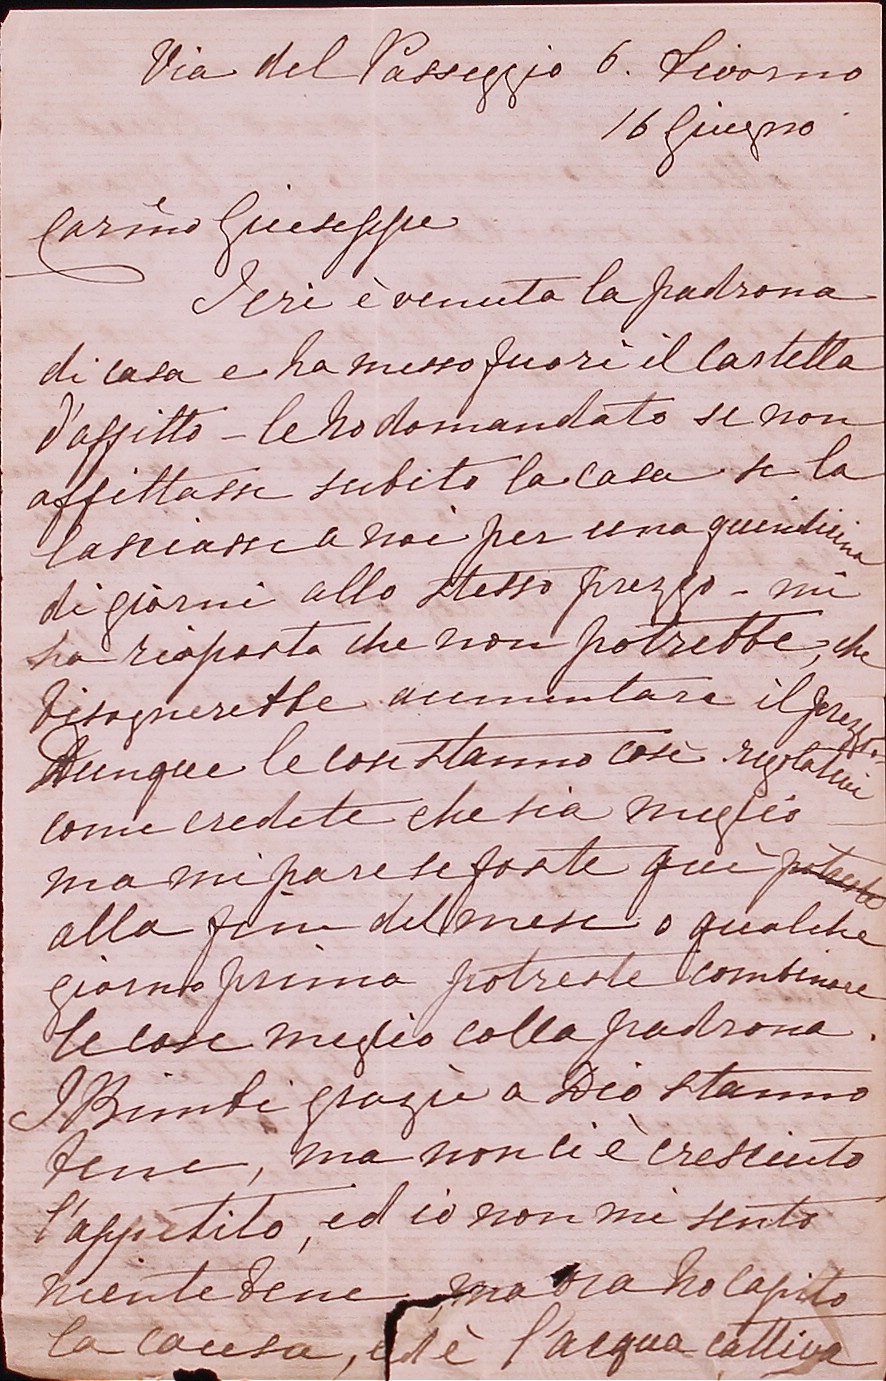 Via del Passeggio 6. Livorno
16 Giugno
Carino Giuseppe
Ieri è venuta la padrona
di casa e ha messo fuori il cartella
d'affitto - le ho domandato se non
affittasse subito la casa se la
lasciasse a noi per una quindicina
di giorni allo stesso prezzo - mi
ha risposta che non potrebbe, che
bisognerebbe aumentare il prezzo -
Dunque le cose stanno così regolatevi
come credete che sia meglio -
ma mi pare se foste quì
alla fine del mese o qualche
giorno prima potreste combinare
le cose meglio colla padrona.
I Bimbi grazie a Dio stanno
bene, ma non ci è cresciuto
l'appetito, ed io non mi sento
niente bene, ma ora ho capito
la causa, ed è l'acqua cattiva